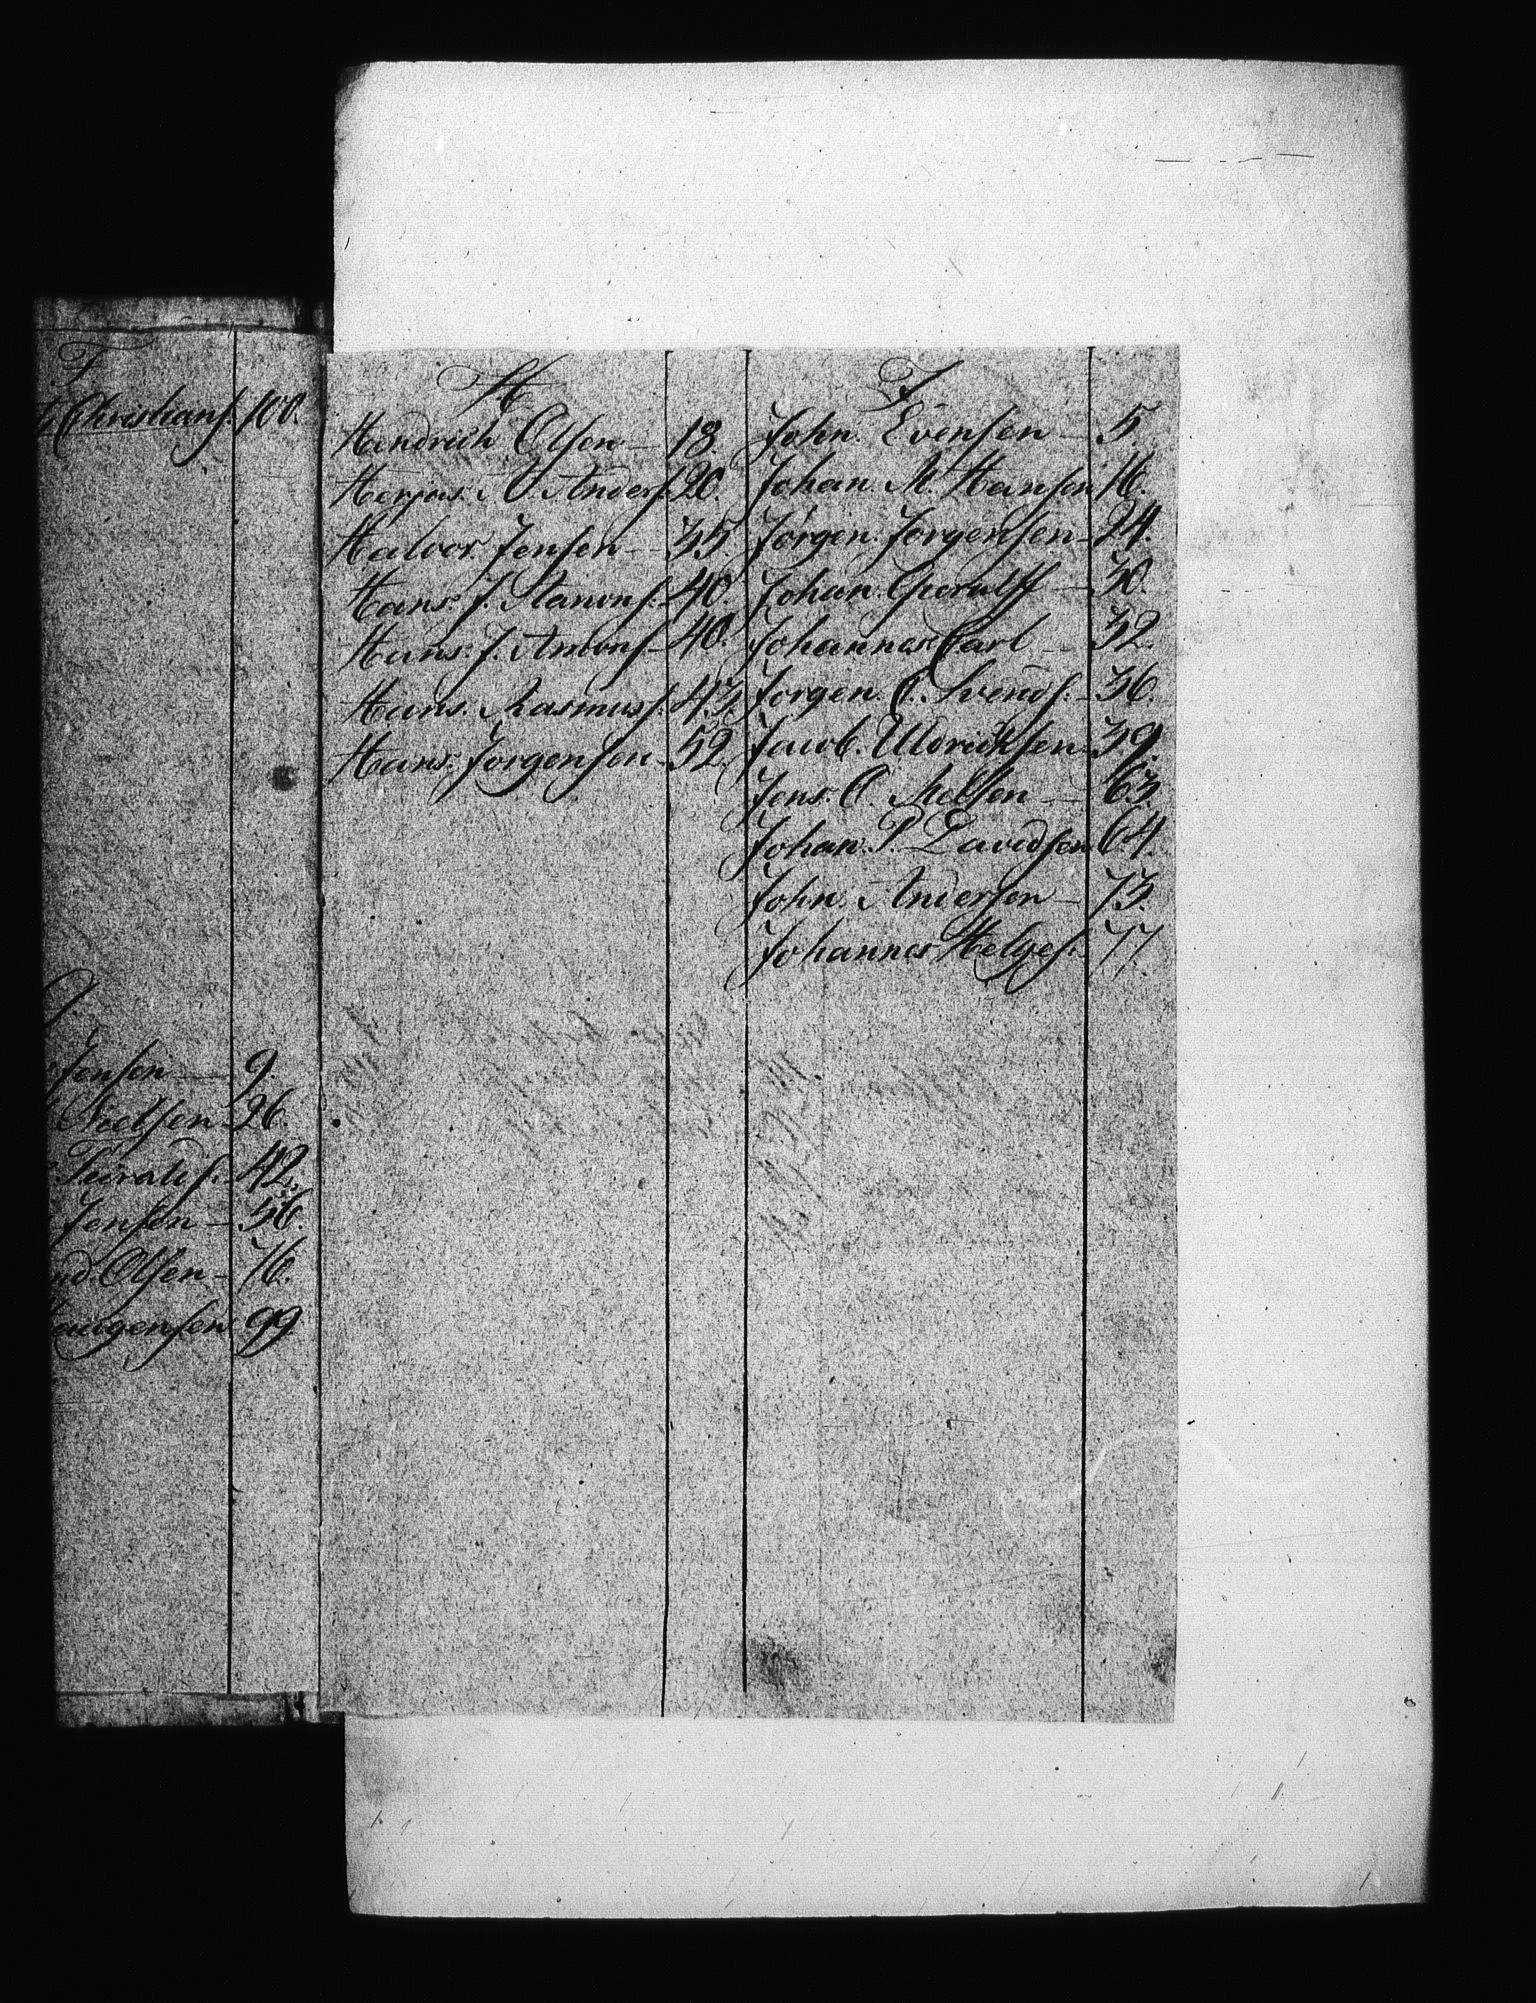 F.
Christians: 100.
G.
Jensen — 9.
Nielsen 26.
42.
Jensen — 56.
nd Olsen — 76.
Haagensen 99
H
Hendrich Olsen — 18.
A. Anders: 20.
Halvor Jensen — 35.
Hans J. 40.
Hans J. Amons: 40.
Hans Rasmuss: 43.
Hans Jørgensen — 52.
J
John Evensen — 5.
Johan M. Hansen 16.
Jørgen Jørgensen — 24.
Johan — 30.
Johannes Carl — 32.
Jørgen C. Svends: — 36.
Jacob Uldrichsen 39.
Jens C. — 63.
Johan P. Davidsen 64.
John Andersen — 73.
Johannes Helges: 77.